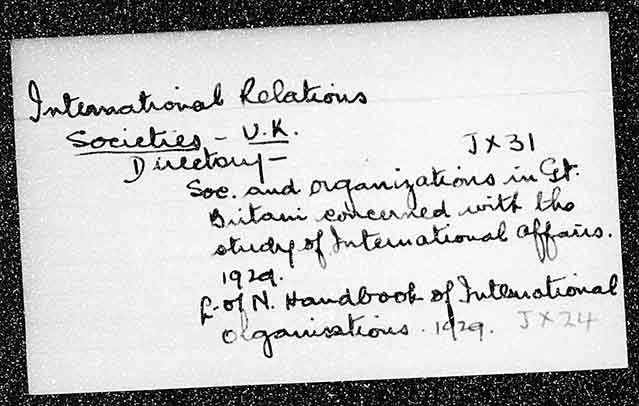 International Relations
Societies - U.K.
Directory - JX31
Soc. and organizations in Gt.
Britain concerned with the
study of International affairs.
1929.
L. of N. Handbook of International
Organisations. 1929. JX24